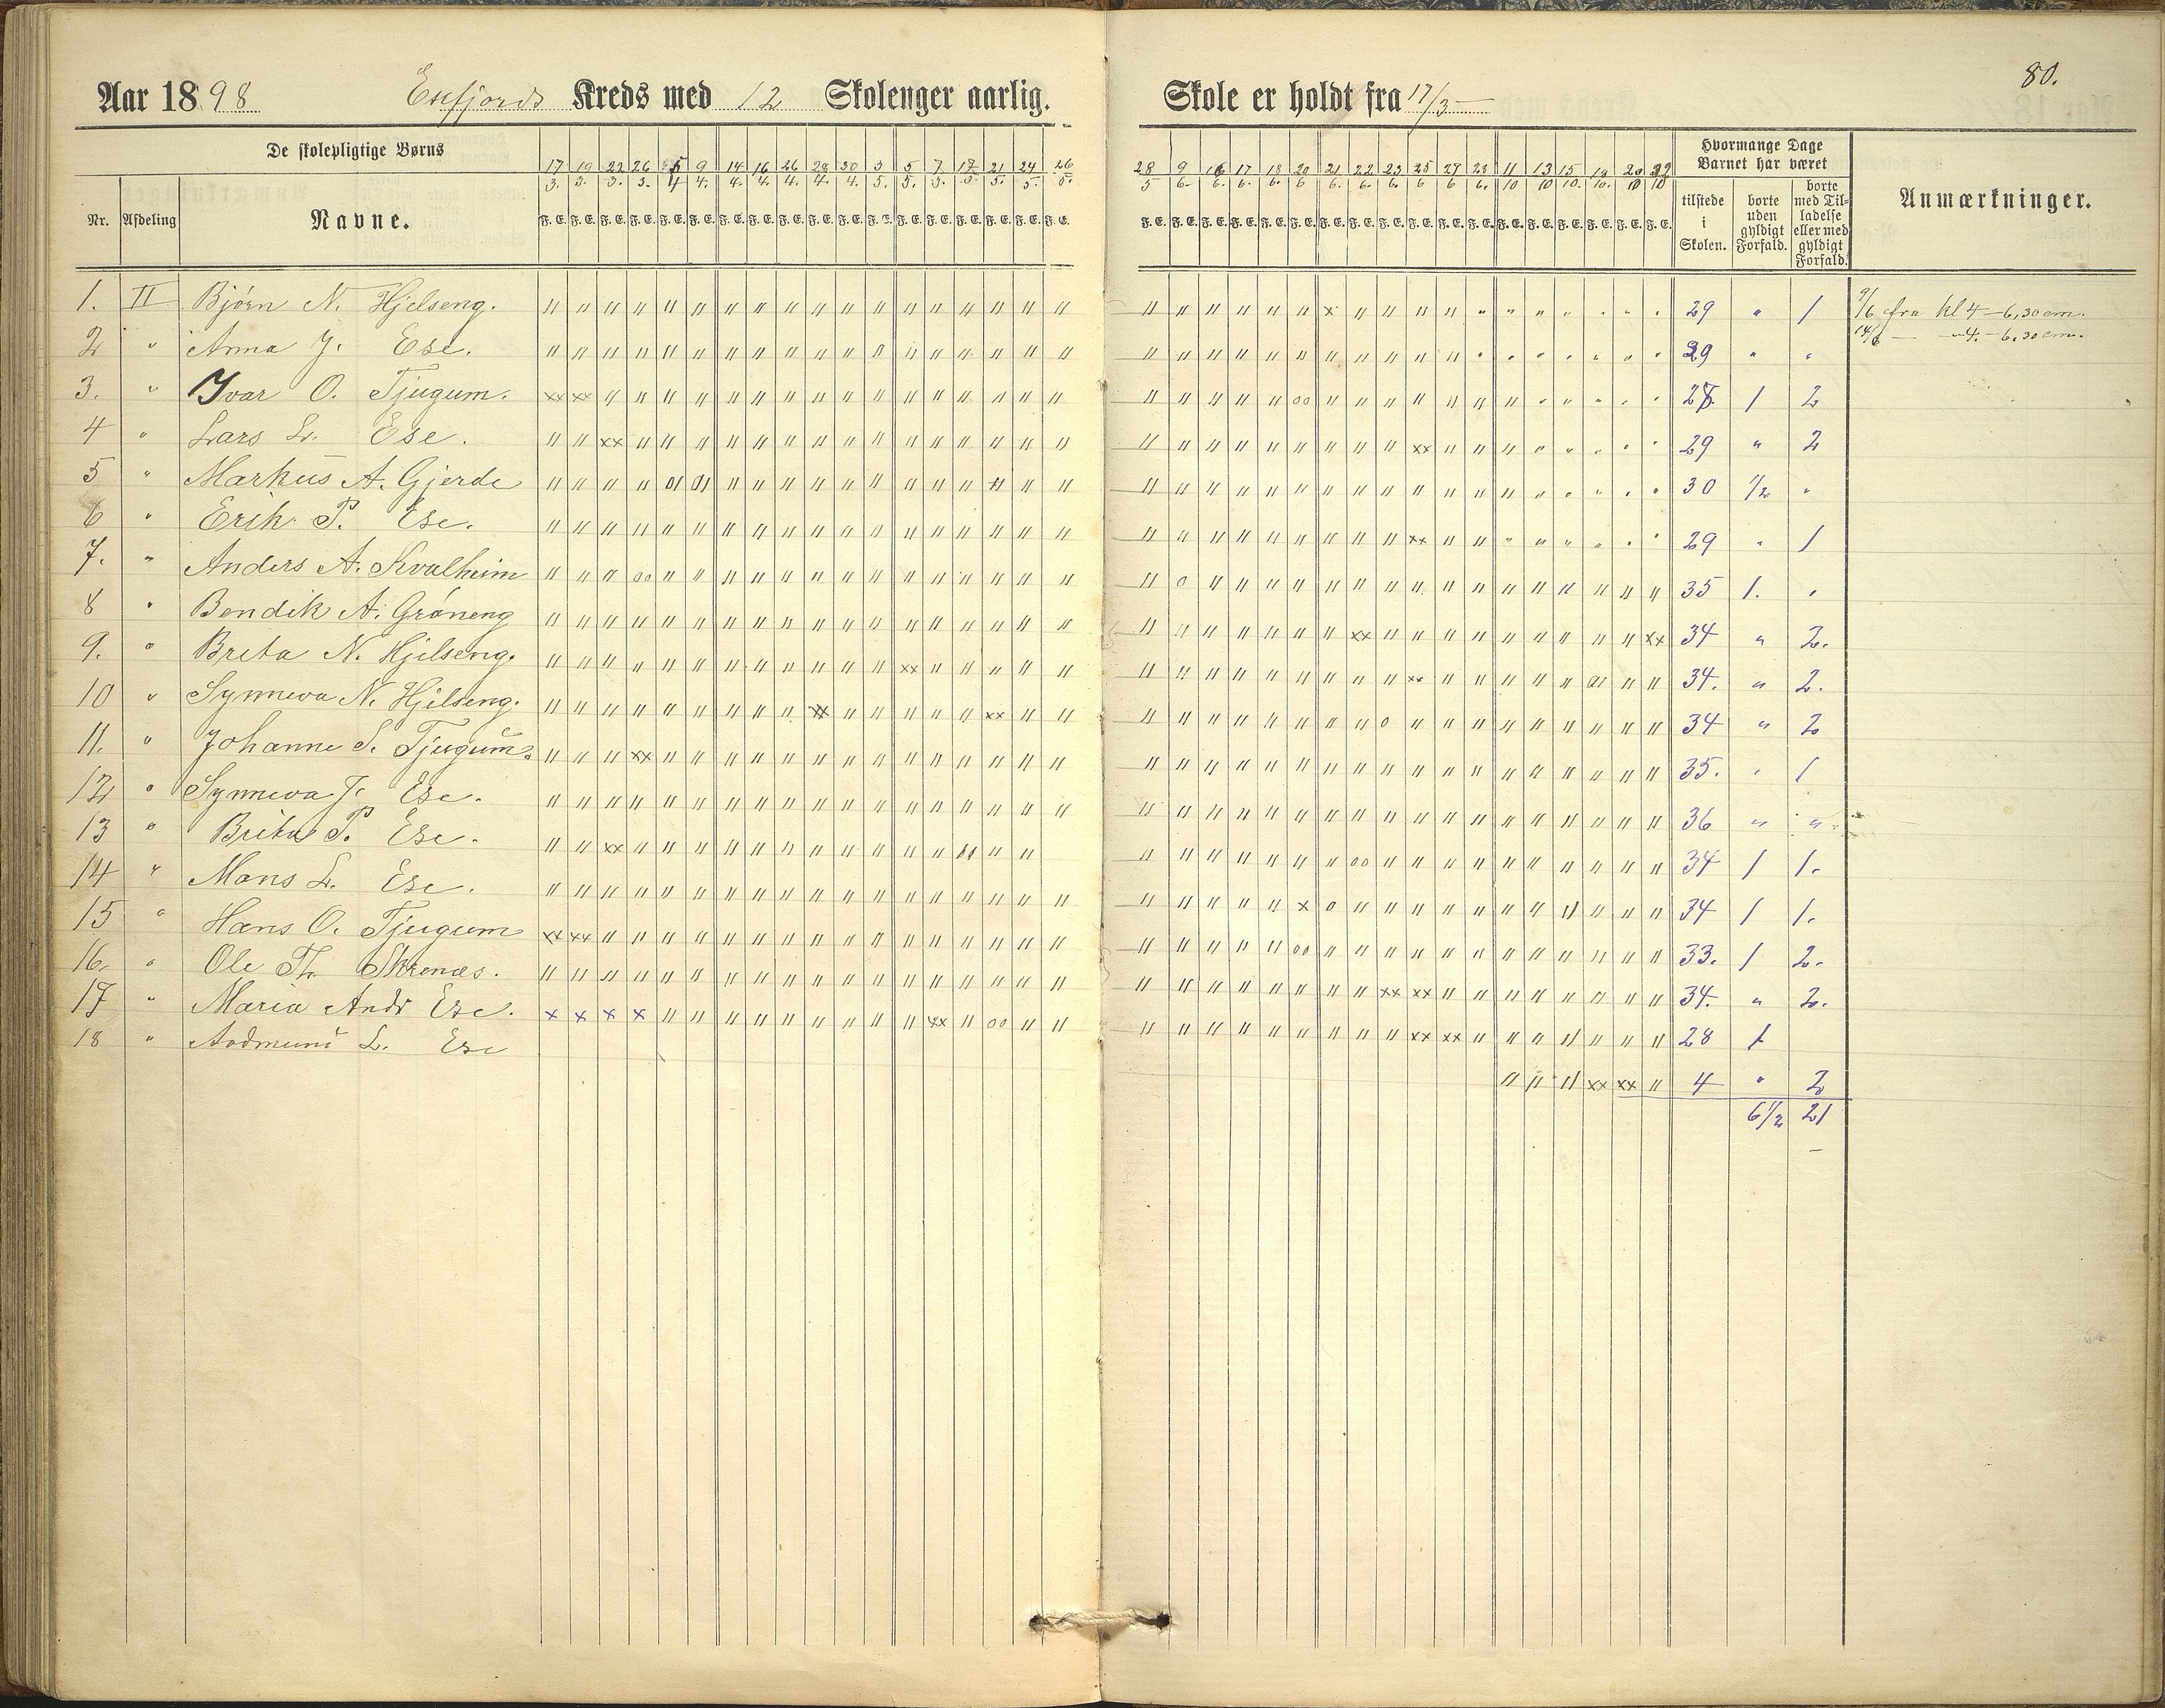 80.
Aar 1898 Esefjords Kreds med 12 Skolenger aarlig. Skole er holdt fra 17/3 —
De skolepligtige Børns
Nr. Afdeling Navne.
17/3. 19/3. 22/3. 26/3. 5/4 9/4. 14/4. 16/4. 26/4. 28/4. 30/4. 3/5. 5/5. 7/5. 17/5. 21/5. 24/5. 26/5.
28/5 9/6. 16/6. 17/6. 18/6. 20/6 21/6. 22/6. 23/6. 25/6 27/6 28/6. 11/10 13/10 15/10. 19/10. 20/10 22/10
F. E. F. E. F. E. F. E. F. E. F. E. F. E. F. E. F. E. F. E. F. E. F. E. F. E. F. E. F. E. F. E. F. E. F. E.
F. E. F. E. F. E. F. E. F. E. F. E. F. E. F. E. F. E. F. E. F. E. F. E. F. E. F. E. F. E. F. E. F. E. F. E.
Hvormange Dage
Barnet har været
tilstede
i
Skolen.
borte
uden
gyldigt
Forfald.
borte
med Til-
ladelse
eller med
gyldigt
Forfald.
Anmærkninger.
1. II Bjørn N. Hjelseng. 29 " 1 9/6 fra kl 4 – 6,30 em.
14/6 — " 4. – 6,30 em.
2 " Anna J. Ese. 29 " "
3. " Ivar O. Tjugum. 27. 1 2
4 " Lars L. Ese. 29 " 2
5 " Markus A. Gjerde 30 1/2 "
6 " Erik P. Ese. 29 " 1
7. " Anders A. Kvalheim 35 1. "
8 " Bendik A. Grøneng 34 " 2.
9. " Brita N. Hjelseng. 34. " 2.
10 " Synneva N. Hjelseng. 34 " 2
11. " Johanne S. Tjugum. 35. " 1
12 " Synneva J. Ese. 36 " "
13 " Brita P. Ese. 34 1 1.
14 " Mons L. Ese. 34 1 1.
15 " Hans O. Tjugum 33. 1 2.
16. " Ole Th. Skrenæs. 34. " 2.
17 " Maria Andr Ese. 28 1
18 " Andmund L. Ese 4 " 2
6 1/2 21